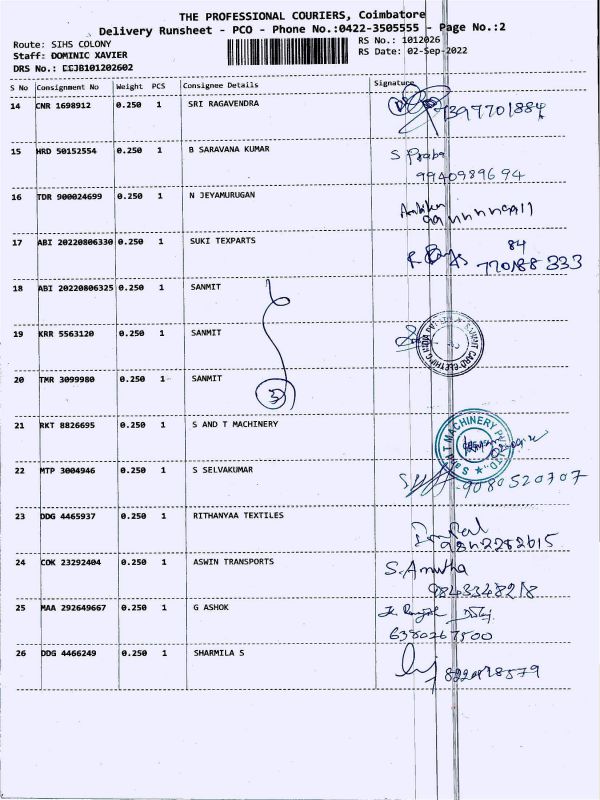 THE PROFESSIONAL COURIERS, Coimbatore
Delivery Runsheet - PCO - Phone No.:0422-3505555 - Page No.:2
Route: SIHS COLONY RS No.: 1012026
Staff: DOMINIC XAVIER RS Date: 02-Sep-2022
DRS No.: 101202602
S No Consignment No Weight PCS Consignee Details Signature
14 CNR 1698912 0.250 1 SRI RAGAVENDRA
7397701884
15 HRD 50152554 0.250 1 B SARAVANA KUMAR
S Praba
9940989694
16 TDR 900024699 0.250 1 N JEYAMURUGAN
17 ABI 20220806330 0.250 1 SUKI TEXPARTS
84
770188 333
18 ABI 20220806325 0.250 1 SANMIT
19 KRR 5563120 0.250 1 SANMIT
20 TMR 3099980 0.250 1 SANMIT
3
21 RKT 8826695 0.250 1 S AND T MACHINERY
S and T MACHINERY
22 MTP 3004946 0.250 1 S SELVAKUMAR
9080520707
23 DDG 4465937 0.250 1 RITHANYAA TEXTILES
9842282615
24 COK 23292404 0.250 1 ASWIN TRANSPORTS
S. Amutha
9843348218
25 MAA 292649667 0.250 1 G ASHOK
6380267500
26 DDG 4466249 0.250 1 SHARMILA S